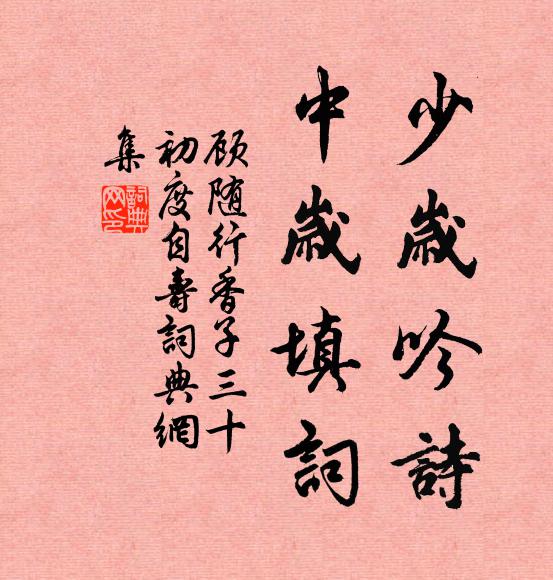 少歲吟詩
中歲填詞
顾随行香子三十
初度自壽詞典網
集
詞典
网印